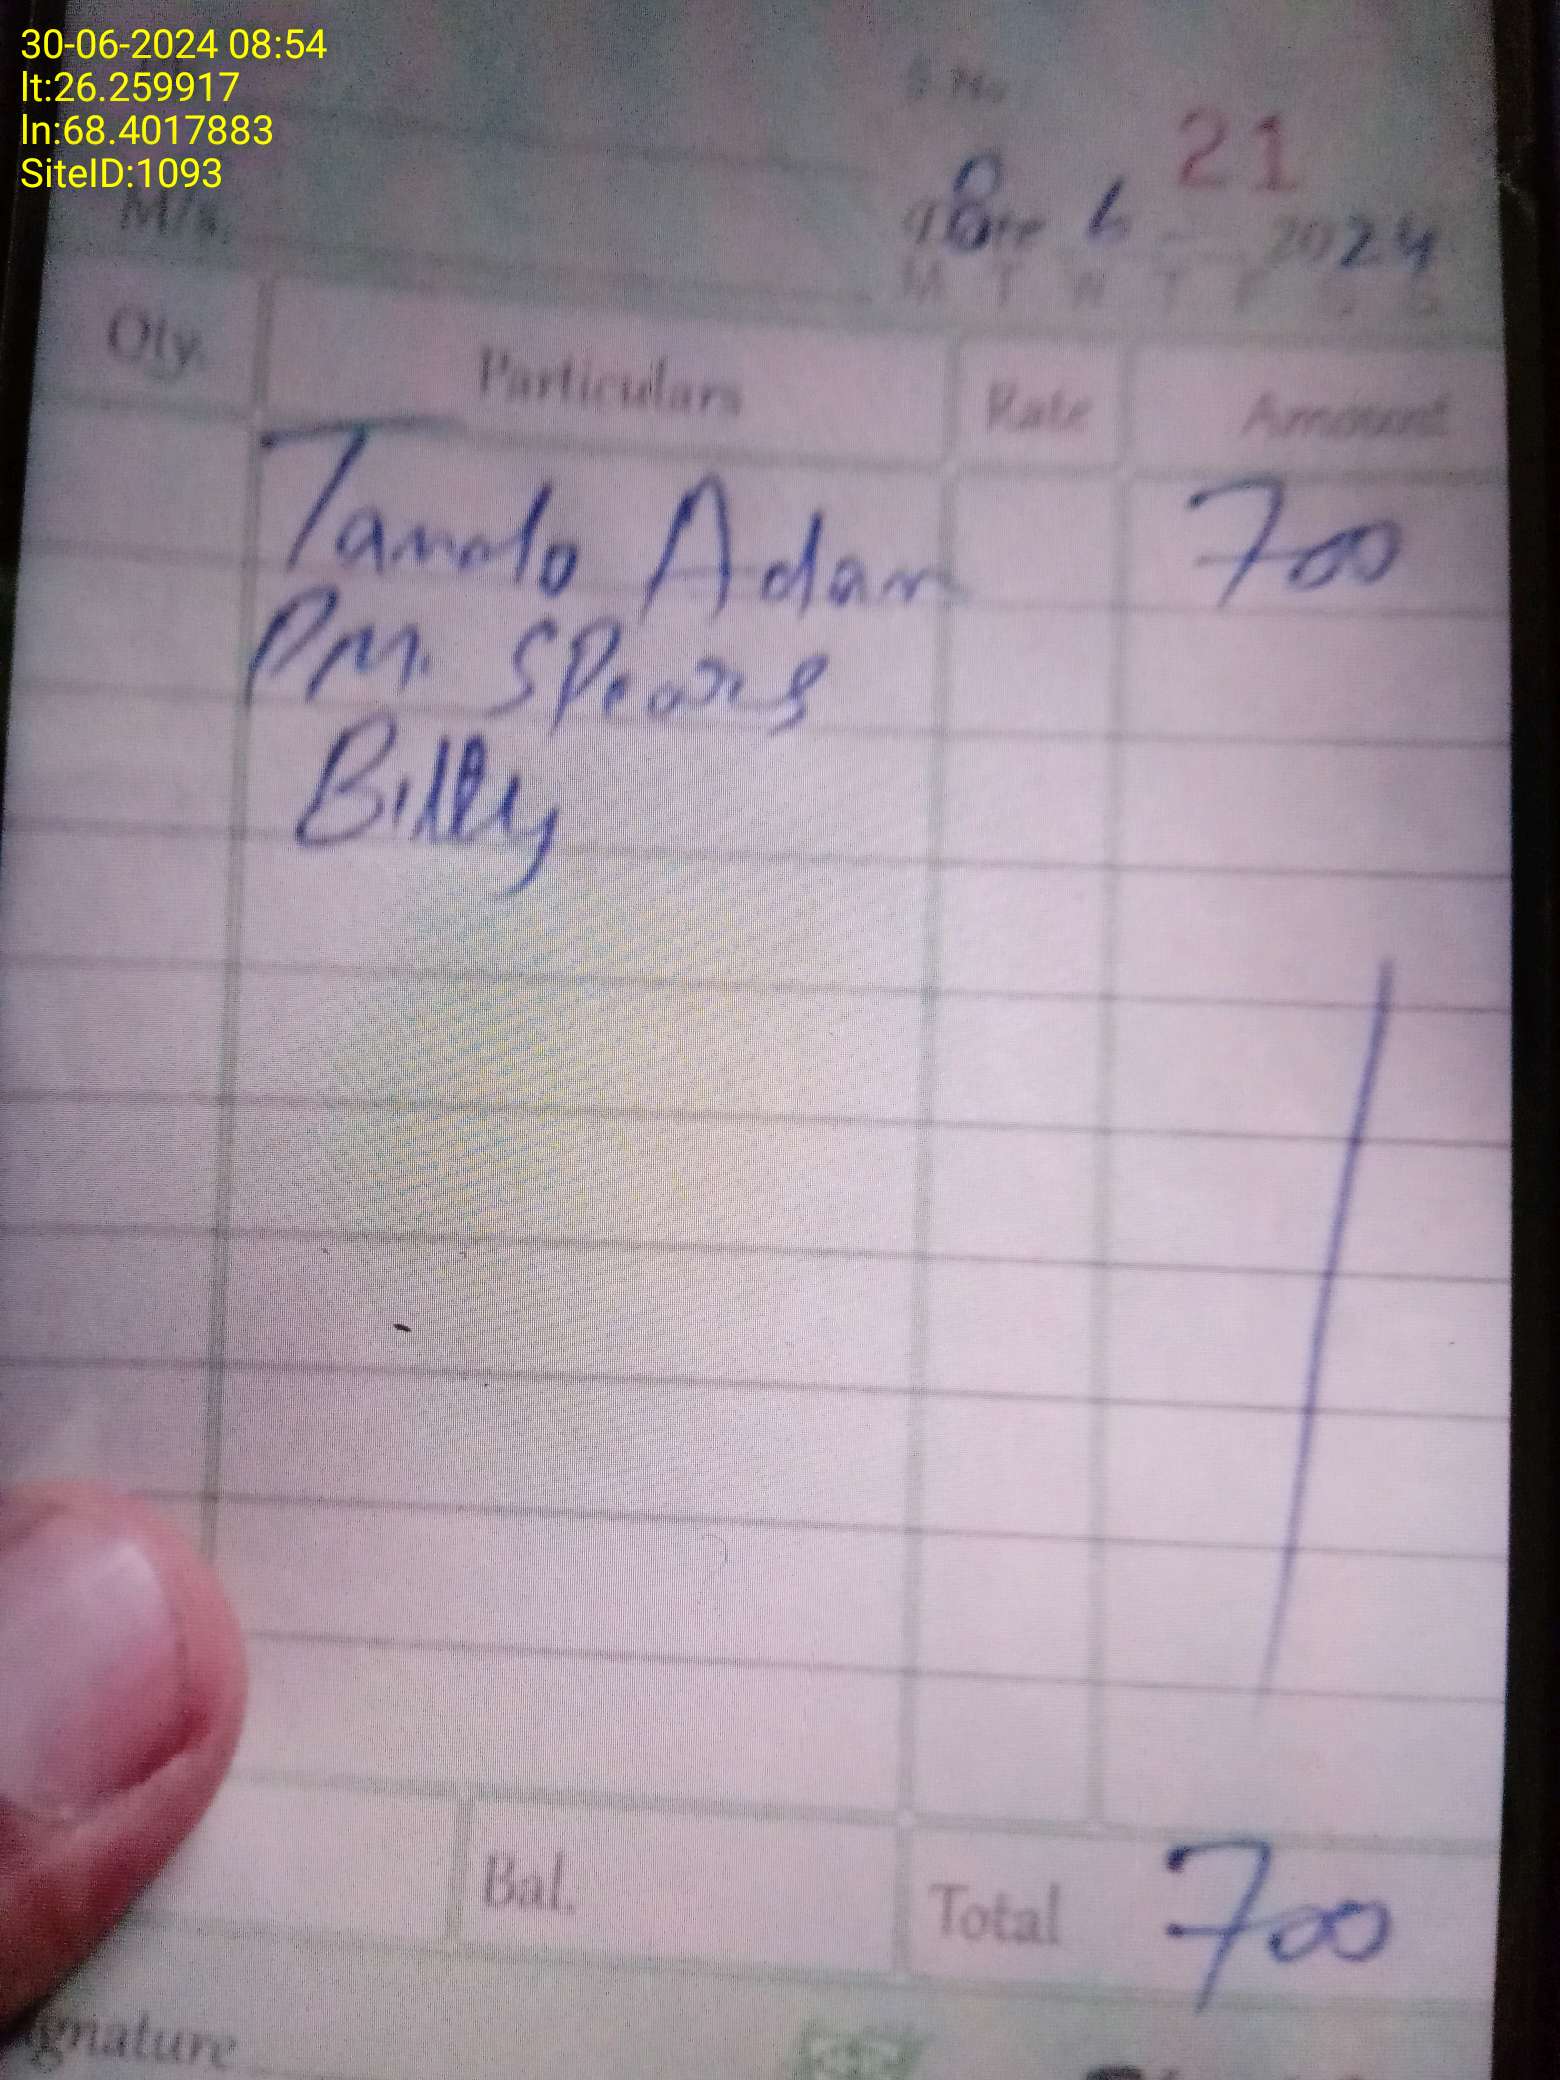 30-06-2024 08:54
lt:26.259917
ln:68.4017883
SiteID:1093
21
M/s.
8 6 2024
M T W T F S S
Qty. Particulars Rate Amount
Tando Adam 700
PM. SPears
Billy
Bal. Total 700
ignature